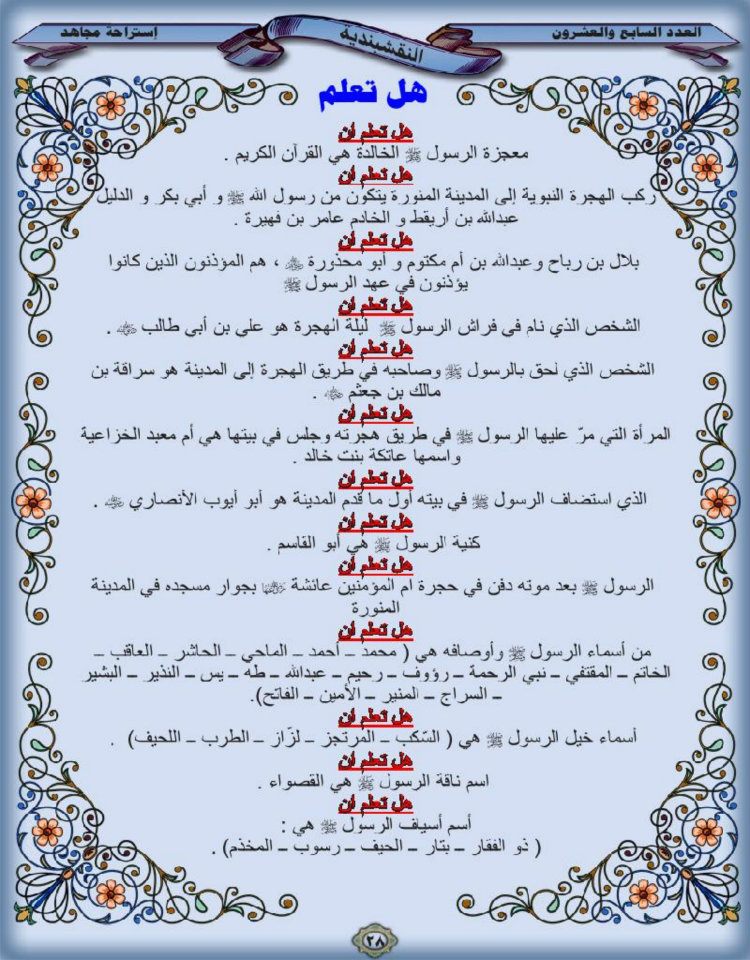 العدد السابع والعشرون
النقشبندية
إستراحة مجاهد
هل تعلم
هل تعلم أن
معجزة الرسول ﷺ الخالدة هي القرآن الكريم .
هل تعلم أن
ركب الهجرة النبوية إلى المدينة المنورة يتكون من رسول الله ﷺ و أبي بكر و الدليل
عبدالله بن أريقط و الخادم عامر بن فهيرة .
هل تعلم أن
بلال بن رباح وعبدالله بن أم مكتوم و أبو محذورة ، هم المؤذنون الذين كانوا
يؤذنون في عهد الرسول ﷺ
هل تعلم أن
الشخص الذي نام في فراش الرسول ﷺ ليلة الهجرة هو علي بن أبي طالب .
هل تعلم أن
الشخص الذي لحق بالرسول ﷺ وصاحبه في طريق الهجرة إلى المدينة هو سراقة بن
مالك بن جعثم .
هل تعلم أن
المرأة التي مرّ عليها الرسول ﷺ في طريق هجرته وجلس في بيتها هي أم معبد الخزاعية
واسمها عاتكة بنت خالد .
هل تعلم أن
الذي استضاف الرسول ﷺ في بيته أول ما قدم المدينة هو أبو أيوب الأنصاري .
هل تعلم أن
كنية الرسول ﷺ هي أبو القاسم .
هل تعلم أن
الرسول ﷺ بعد موته دفن في حجرة ام المؤمنين عائشة بجوار مسجده في المدينة
المنورة
هل تعلم أن
من أسماء الرسول ﷺ وأوصافه هي ( محمد – أحمد – الماحي – الحاشر – العاقب –
الخاتم – المقتفي – نبي الرحمة – رؤوف – رحيم – عبدالله – طه – يس – النذير – البشير
– السراج – المنير – الأمين – الفاتح).
هل تعلم أن
أسماء خيل الرسول ﷺ هي ( السّكب – المرتجز – لزّاز – الطرب – اللحيف) .
هل تعلم أن
اسم ناقة الرسول ﷺ هي القصواء .
هل تعلم أن
أسم أسياف الرسول ﷺ هي :
( ذو الفقار – بتار – الحيف – رسوب – المخذم) .
٢٨